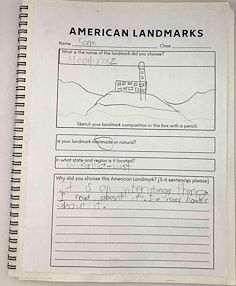 AMERICAN LANDMARKS
Name Sam Class
What is the name of the landmark did you choose?
Alcatraz
Sketch your landmark composition in this box with a pencil.
Is your landmark manmade or natural?
In what state and region is it located?
Why did you choose this American Landmark? [3-6 sentences please]
It is an intresting thing
I read about it. I've read books
about it.